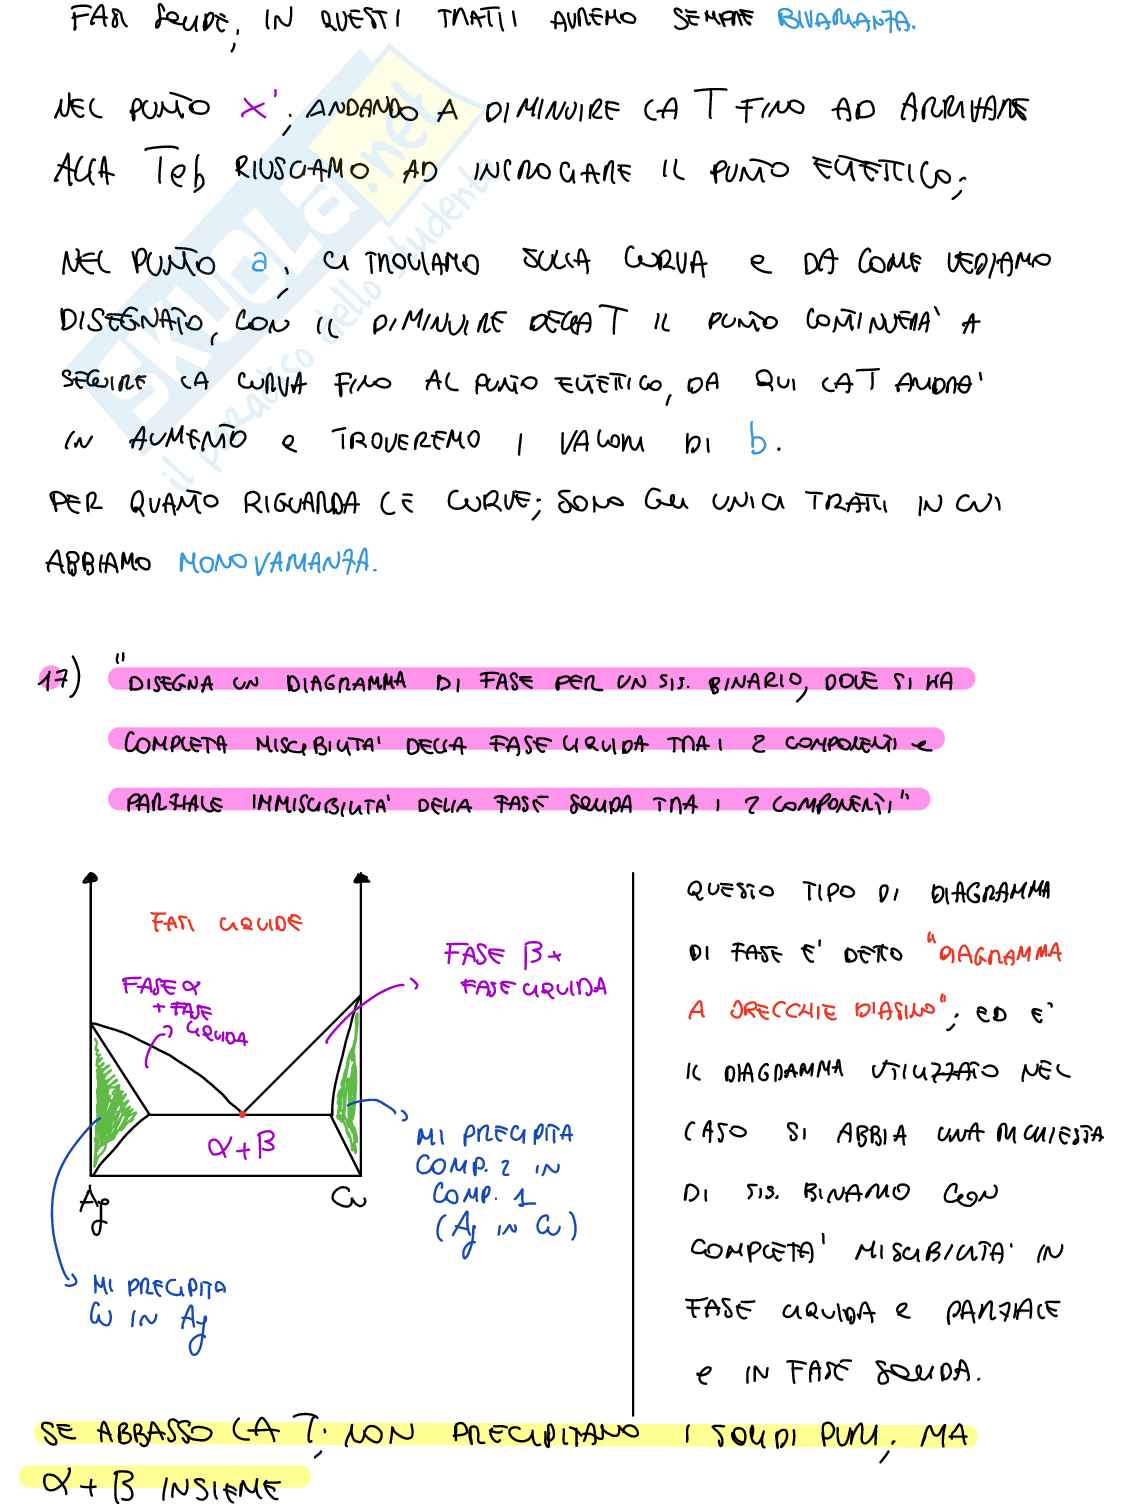 FASI SOLIDE, IN QUESTI TRATTI AVREMO SEMPRE BIVARIANZA.
NEL PUNTO x', ANDANDO A DIMINUIRE LA T FINO AD ARRIVARE
ALLA Teb RIUSCIAMO AD INCROCIARE IL PUNTO EUTETTICO;
NEL PUNTO a, CI TROVIAMO SULLA CURVA e DA COME VEDIAMO
DISEGNATO, CON IL DIMINUIRE DELLA T IL PUNTO CONTINUERA' A
SEGUIRE LA CURVA FINO AL PUNTO EUTETICO, DA QUI LA T ANDRA'
IN AUMENTO e TROVEREMO I VALORI DI b.
PER QUANTO RIGUARDA LE CURVE; SONO GLI UNICI TRATTI IN CUI
ABBIAMO MONOVARIANZA.
17) "DISEGNA UN DIAGRAMMA DI FASE PER UN SIS. BINARIO, DOVE SI HA
COMPLETA MISCIBILITA' DELLA FASE LIQUIDA TRA I 2 COMPONENTI e
PARZIALE IMMISCIBILITA' DELLA FASE SOLIDA TRA I 2 COMPONENTI"
FASI LIQUIDE
FASE α
+ FASE
LIQUIDA
FASE β +
FASE LIQUIDA
α+β
Ag
Cu
MI PRECIPITA
COMP. 2 IN
COMP. 1
(Ag IN Cu)
MI PRECIPITA
Cu IN Ag
QUESTO TIPO DI DIAGRAMMA
DI FASE E' DETTO "DIAGRAMMA
A ORECCHIE D'ASINO"; ED E'
IL DIAGRAMMA UTILIZZATO NEL
CASO SI ABBIA UNA RICHIESTA
DI SIS. BINARIO CON
COMPLETA' MISCIBILITA' IN
FASE LIQUIDA e PARZIALE
e IN FASE SOLIDA.
SE ABBASSO LA T; NON PRECIPITANO I SOLIDI PURI, MA
α+β INSIEME
SKUOLA.net
il paradiso dello studente